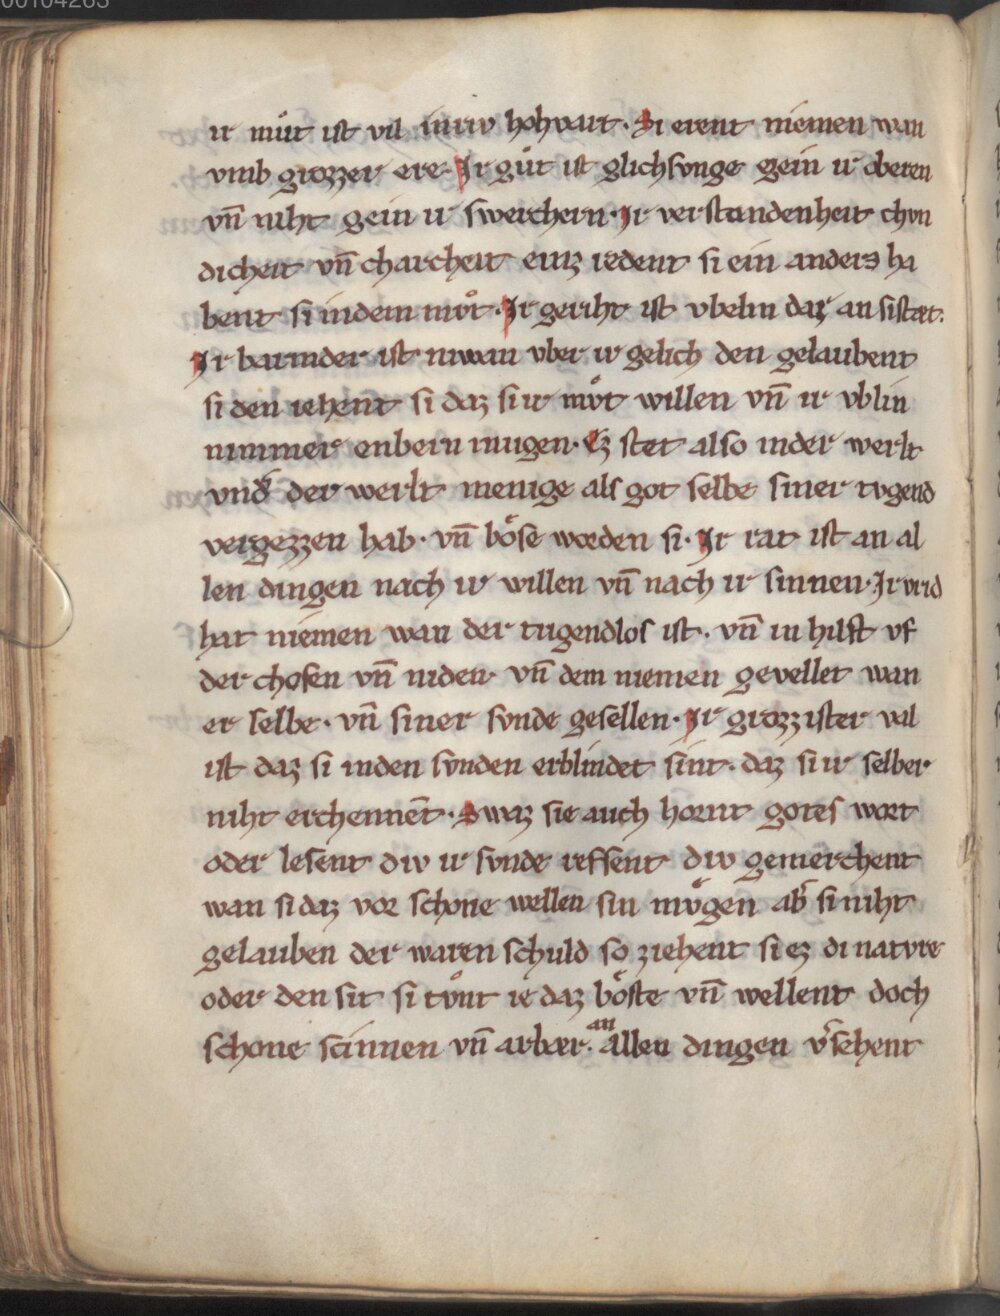 00104263
ir muͦt ist vil in irw hohvart. Si erent niemen wan
vmb grozzer ere. Ir guͤt ist glichsvnge gein ir oberen
vn̄ niht gein ir swerchern. Ir verstandenheit chvn
dicheit vn̄ charcheit einz redent si ein anders ha
bent si indem mvͦt. Ir geriht ist vbelin daz an sistet.
Ir barmder ist niwan vber ir gelich den gelaubent
si den iehent si daz si ir mvͦt willen vn̄ ir vblin
nimmer enbern mugen. Ez stet also inder werlt
vnd der werlt menige als got selbe siner tvgend
vergezzen hab. vn̄ boͤse worden si. Ir rat ist an al
len dingen nach ir willen vn̄ nach ir sinnen. Ir vrid
hat niemen wan der tugendlos ist. vn̄ in hilft vf
der chosen vn̄ niden vn̄ dem niemen gevellet wan
er selbe. vn̄ siner svnde gesellen. Ir grozzister val
ist daz si inden svnden erblindet sint. daz si ir selber
niht erchennēt. Swaz sie auch hornt gotes wort
oder lesent div ir svnde reffsent div gemerchent
wan si daz vor schone wellen sin mvͤgen ab̄ si niht
gelauben der waren schuld so ziehent si ez di natvre
oder den sit si tvͦnt ie daz boͤste vn̄ wellent doch
schone scinnen vn̄ arbæt. an allen dingen v̄sehent